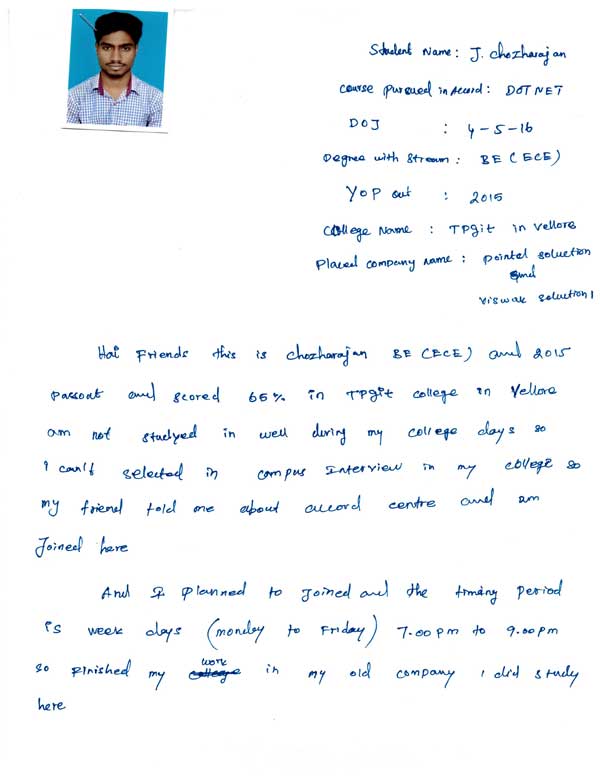 Student Name: J. Chozharajan
Course Pursued in Accord: DOT NET
DOJ : 4-5-16
Degree with Stream: BE (ECE)
YOP out : 2015
College Name : TPGit in Vellore
Placed Company Name : Pointel soluction
and
Viswak soluction
Hai Friends this is chozharajan BE (ECE) and 2015
passout and scored 65% in TPgit college in Vellore
am not studyed in well during my college days so
I can't selected in campus Interview in my college so
my friend told me about accord centre and am
Joined here
And I planned to Joined and the timing period
is week days (monday to Friday) 7.00 pm to 9.00pm
so Finished my work in my old company I did study
here